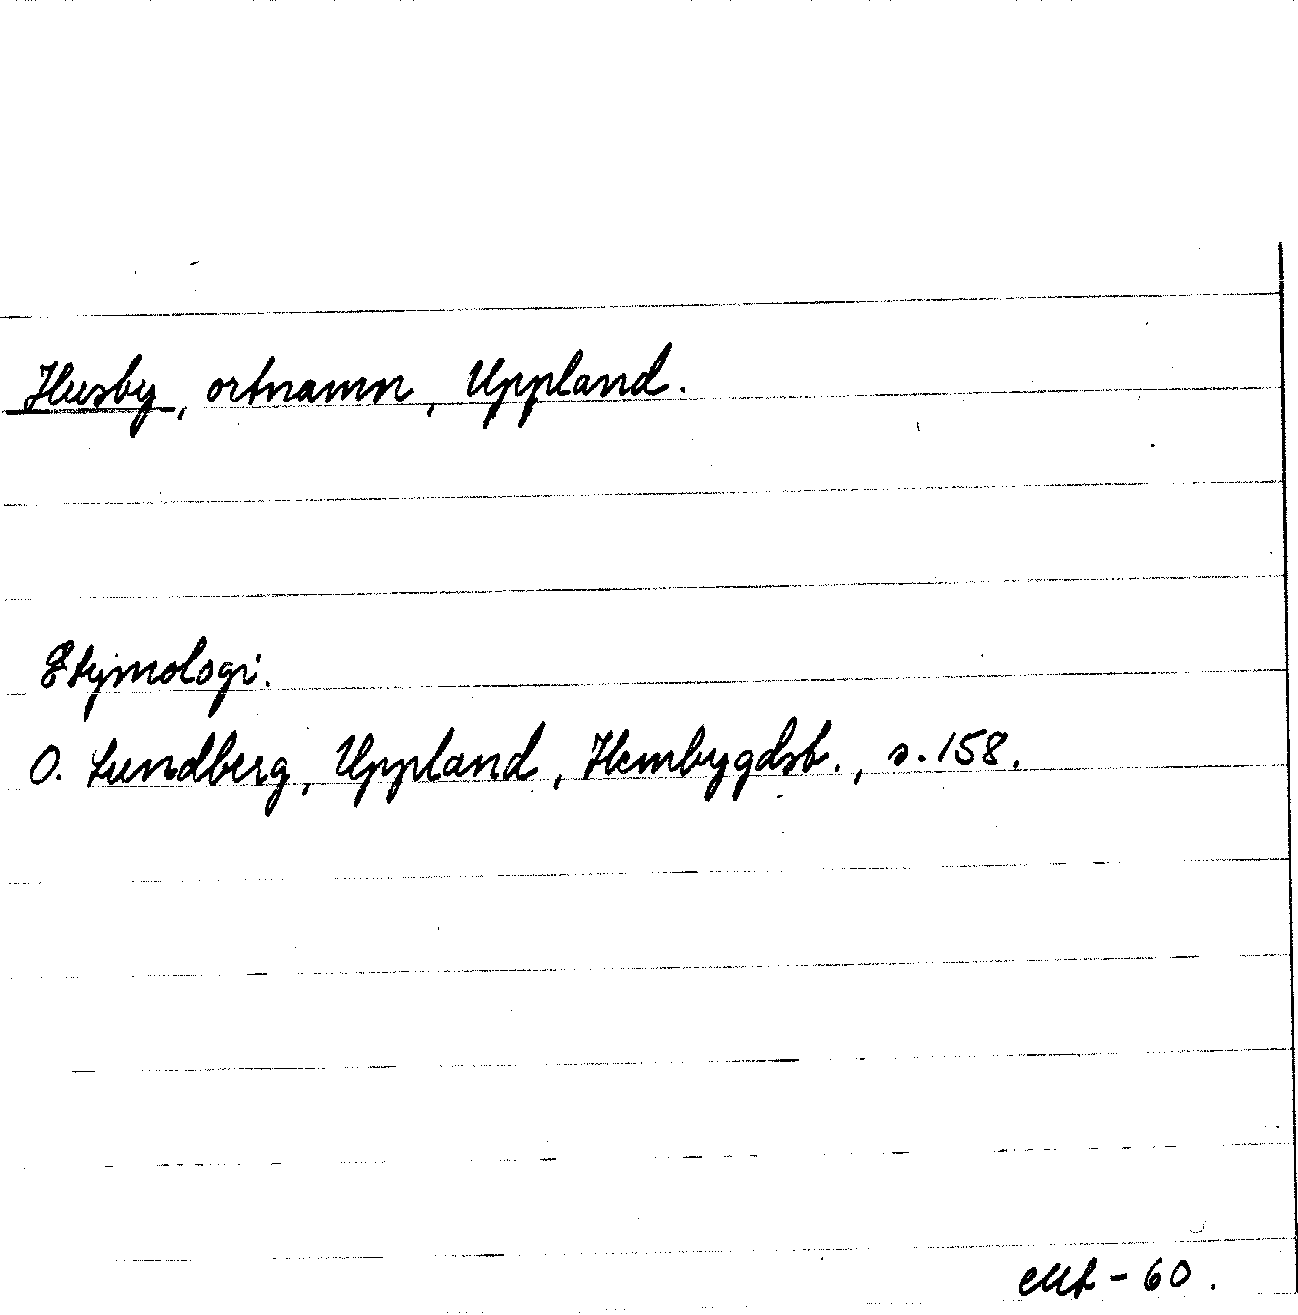 Husby, ortnamn, Uppland.
Etymologi.
O. Lundberg, Uppland, Hembygdsb., s. 158.
-60.